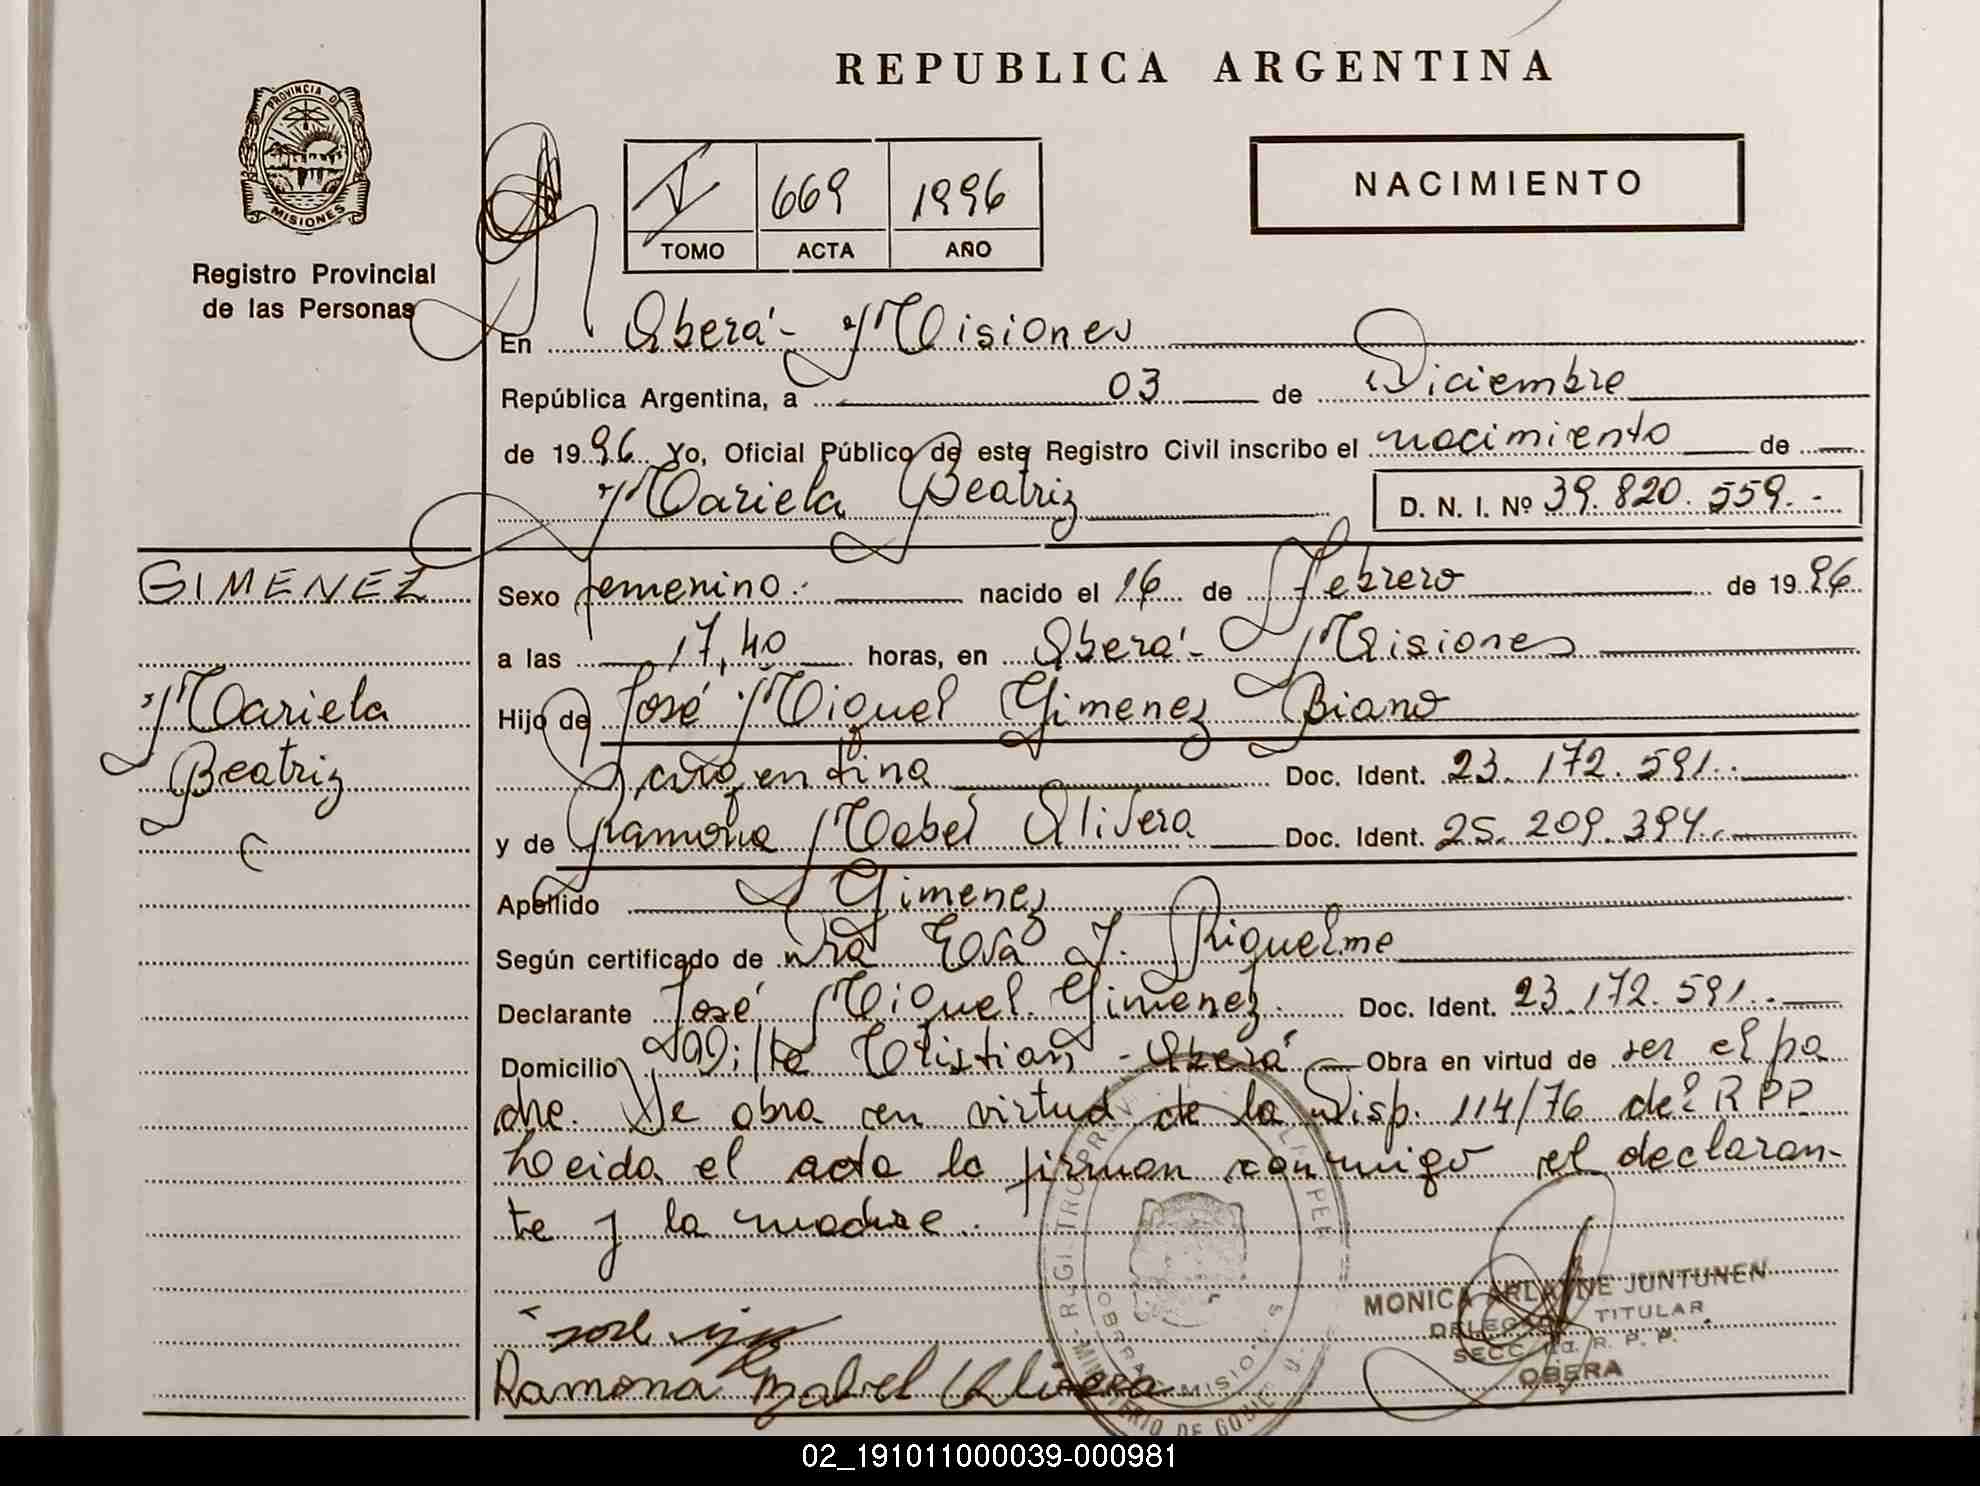 REPUBLICA ARGENTINA
PROVINCIA DE
MISIONES
Registro Provincial
de las Personas
V 669 1996
TOMO ACTA AÑO
NACIMIENTO
En Oberá - Misiones
República Argentina, a 03 de Diciembre
de 1996 Yo, Oficial Público de este Registro Civil inscribo el nacimiento de
Mariela Beatriz D. N. I. Nº 39.820.559.-
GIMENEZ
Mariela
Beatriz
Sexo femenino.- nacido el 16 de Febrero de 1996
a las 17,40 horas, en Oberá - Misiones
Hijo de José Miguel Gimenez Biano
Argentina Doc. Ident. 23.172.591.-
y de Ramona Mabel Olivera Doc. Ident. 25.209.394.-
Apellido Gimenez
Según certificado de Dra Eva J. Riquelme
Declarante José Miguel Gimenez. Doc. Ident. 23.172.591.-
Domicilio Villa Cristian - Oberá - Obra en virtud de ser el pa
dre. Se obra en virtud de la Disp. 114/76 del RPP
Leida el acta la firman conmigo el declaran-
te y la madre.
MONICA ARLAINE JUNTUNEN
TITULAR
SECC. R. P. P.
OBERA
Ramona Mabel Olivera
02_191011000039-000981